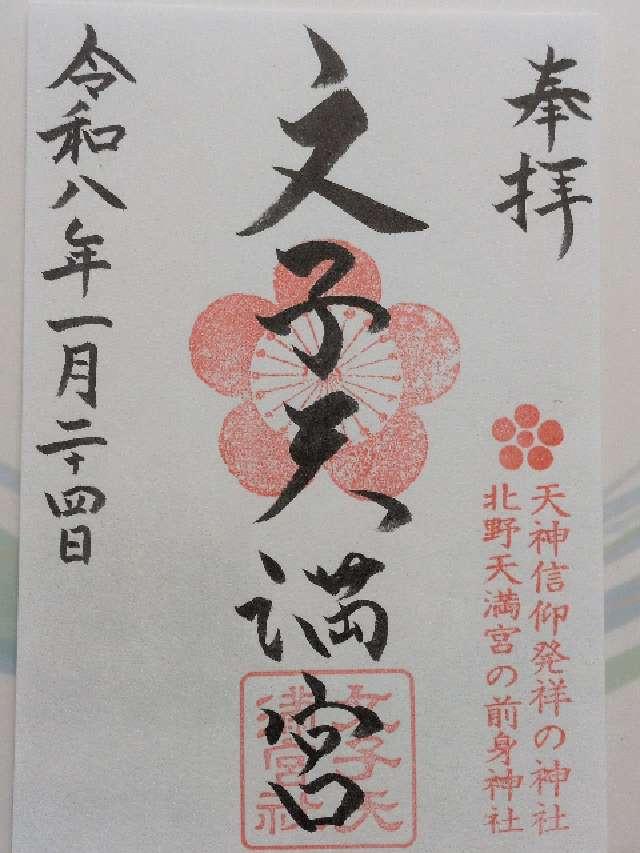 奉拝
天神信仰発祥の神社
北野天満宮の前身神社
文子天満宮
文子天
満宮社
令和八年一月二十四日